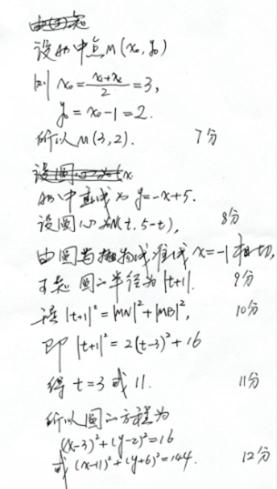 设AB中点M(x₀,y₀)
则 x₀=(x₁+x₂)/2=3,
y₀=x₀-1=2.
所以M(3,2). 7分
AB中垂线为y=-x+5.
设圆心为N(t,5-t), 8分
由圆与抛物线准线x=-1相切,
于是圆的半径为|t+1|. 9分
|t+1|²=|MN|²+|MB|², 10分
即|t+1|²=2(t-3)²+16
得t=3或11. 11分
所以圆的方程为
(x-3)²+(y-2)²=16
或(x-11)²+(y+6)²=144. 12分